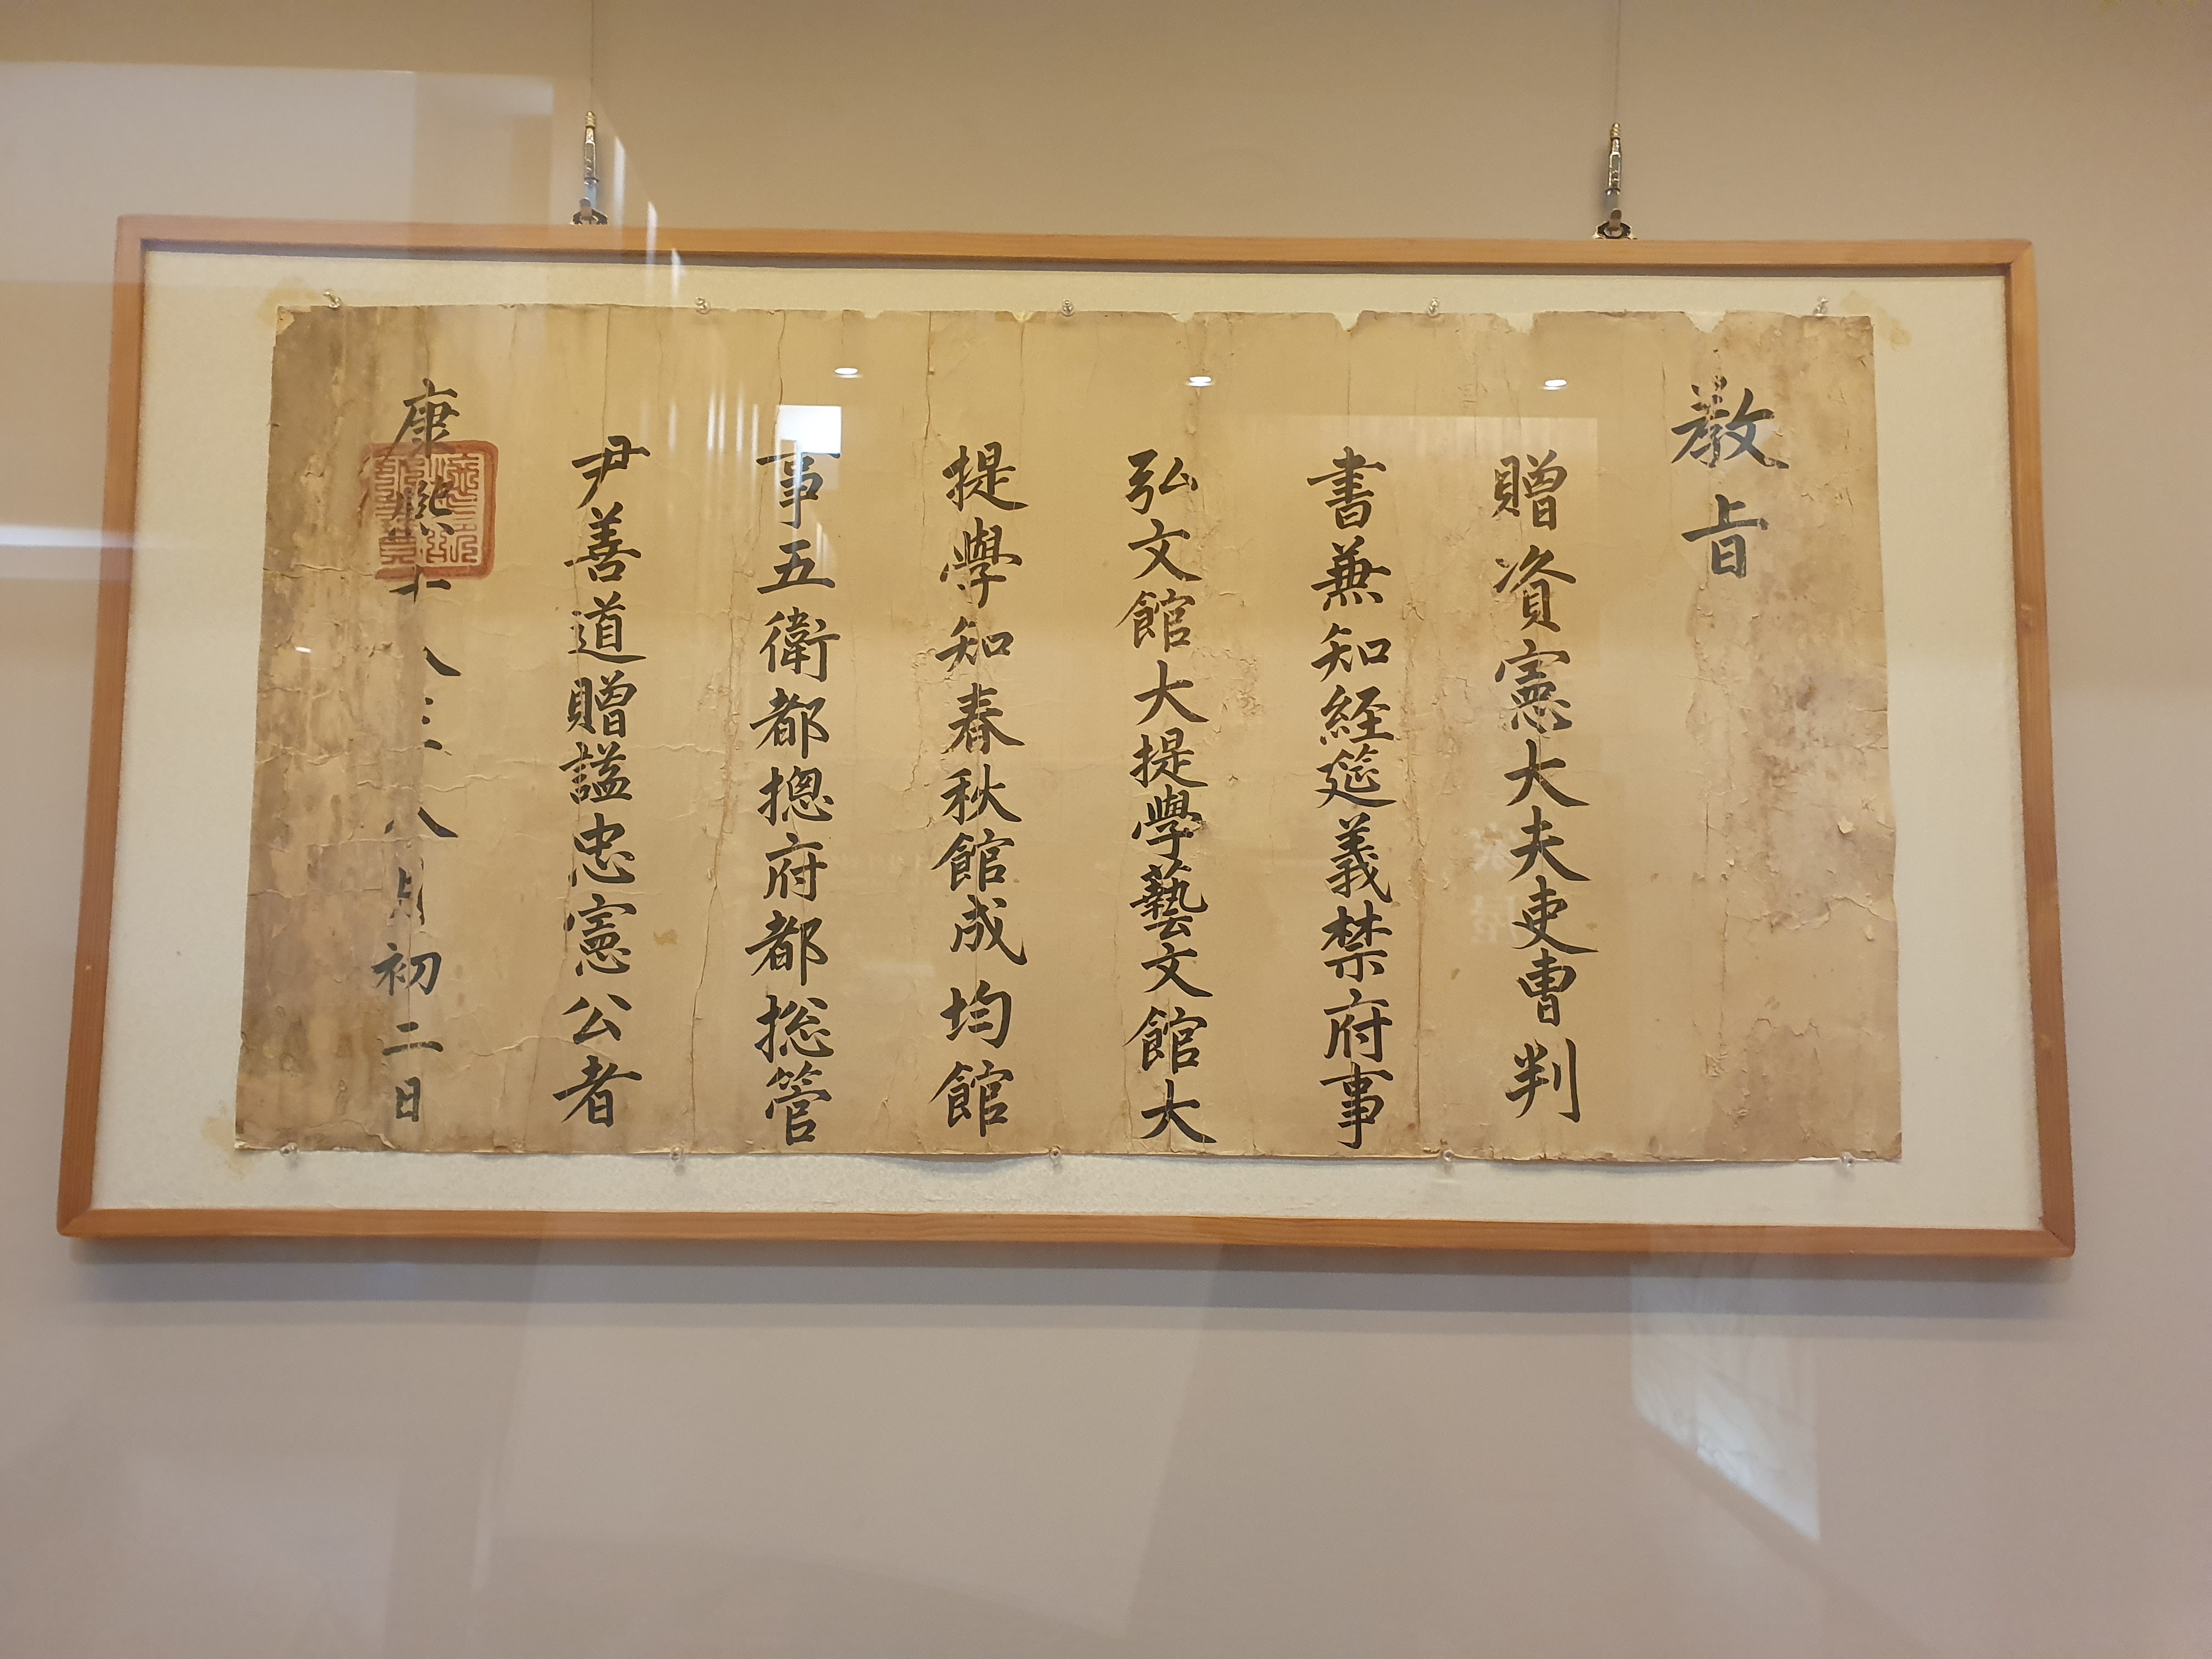 教旨
贈資憲大夫吏曹判
書兼知経筵義禁府事
弘文館大提學藝文館大
提學知春秋館成均館
事五衛都摠府都捴管
尹善道贈謚忠憲公者
康熙十八 八月初二日